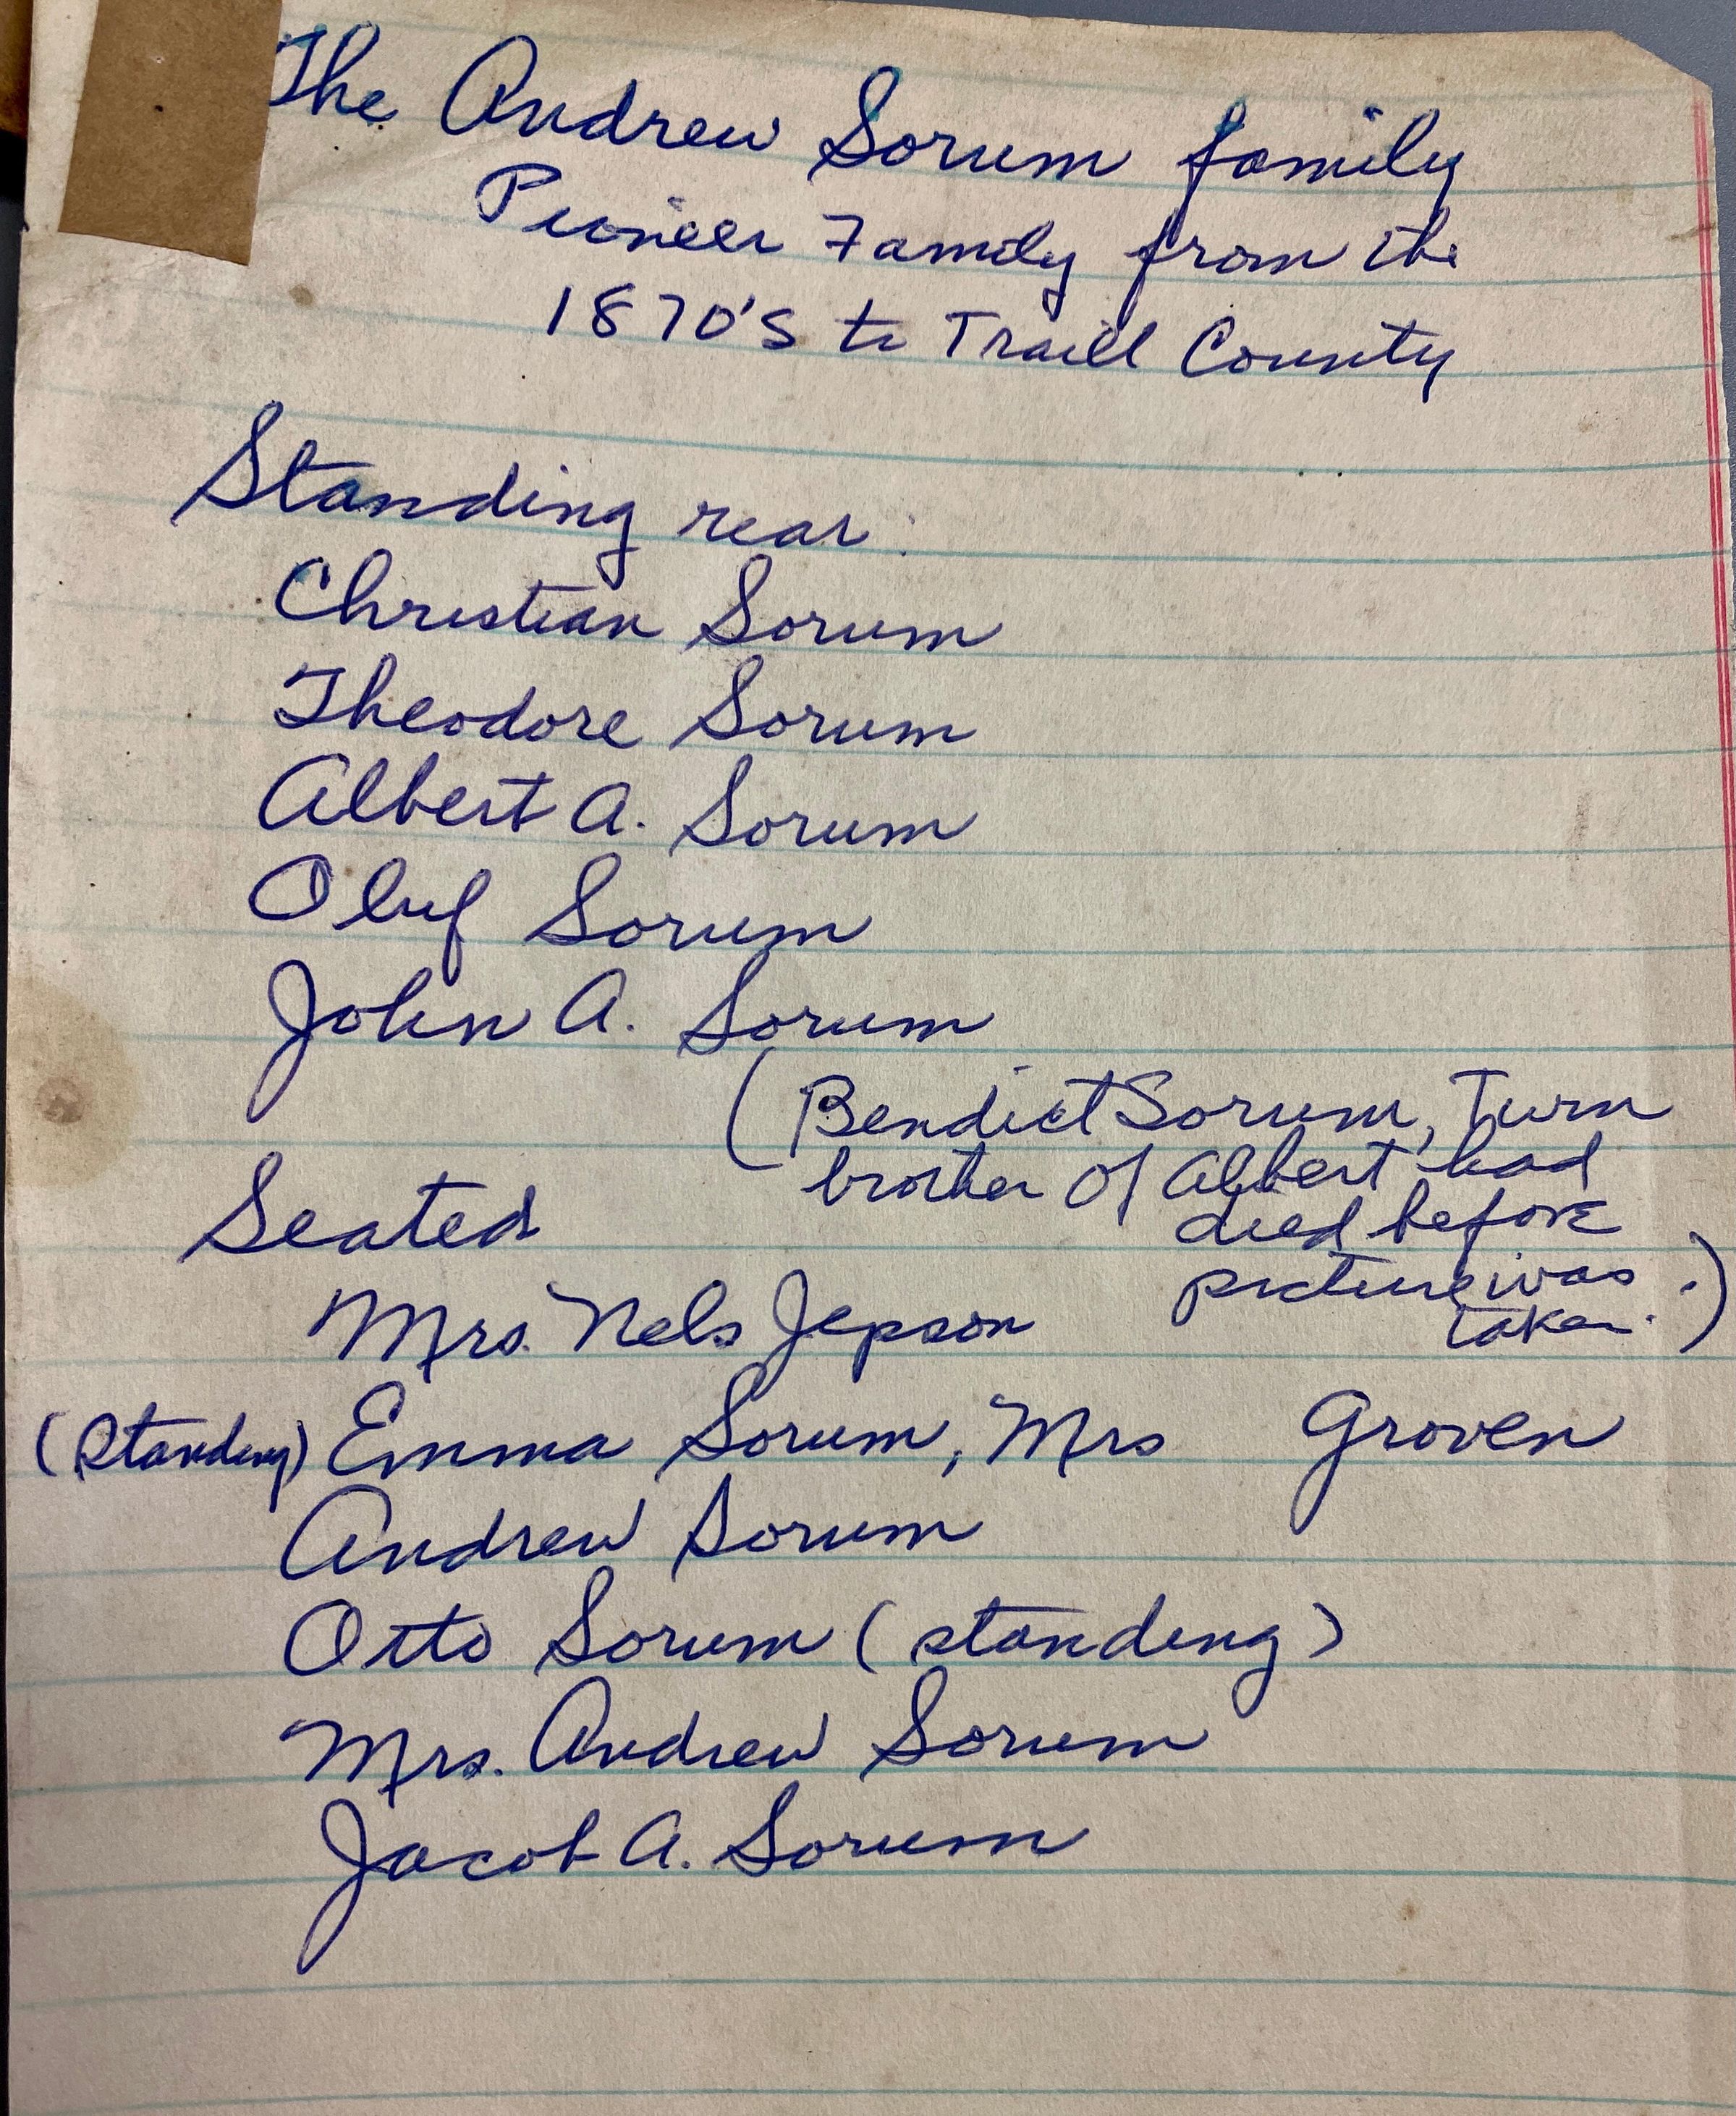 The Andrew Sorum family
Pioneer Family from the
1870's to Traill County
Standing rear:
Christian Sorum
Theodore Sorum
Albert A. Sorum
Oluf Sorum
John A. Sorum
(Bendict Sorum, Twin
brother of Albert had
died before
picture was
taken.)
Seated
Mrs. Nels Jepson
(Standing) Emma Sorum, Mrs Groven
Andrew Sorum
Otto Sorum (standing)
Mrs. Andrew Sorum
Jacob A. Sorum